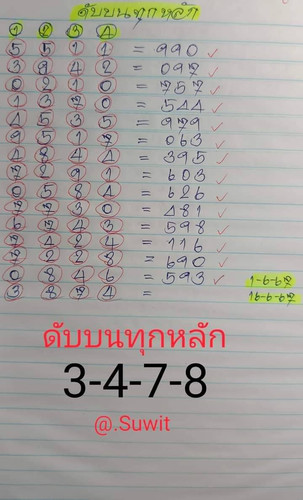 ดับบนทุกหลัก
1 2 3 4
5 5 1 1 = 990
3 9 4 2 = 097
0 2 1 0 = 757
1 3 7 0 = 544
4 5 3 5 = 979
9 5 1 7 = 063
4 8 4 4 = 395
7 2 9 1 = 603
0 5 8 4 = 626
7 7 3 0 = 481
6 7 4 3 = 598
7 4 2 4 = 116
7 2 2 8 = 690
0 8 4 6 = 593
1-6-67
3 8 7 4 =
16-6-67
ดับบนทุกหลัก
3-4-7-8
@.Suwit